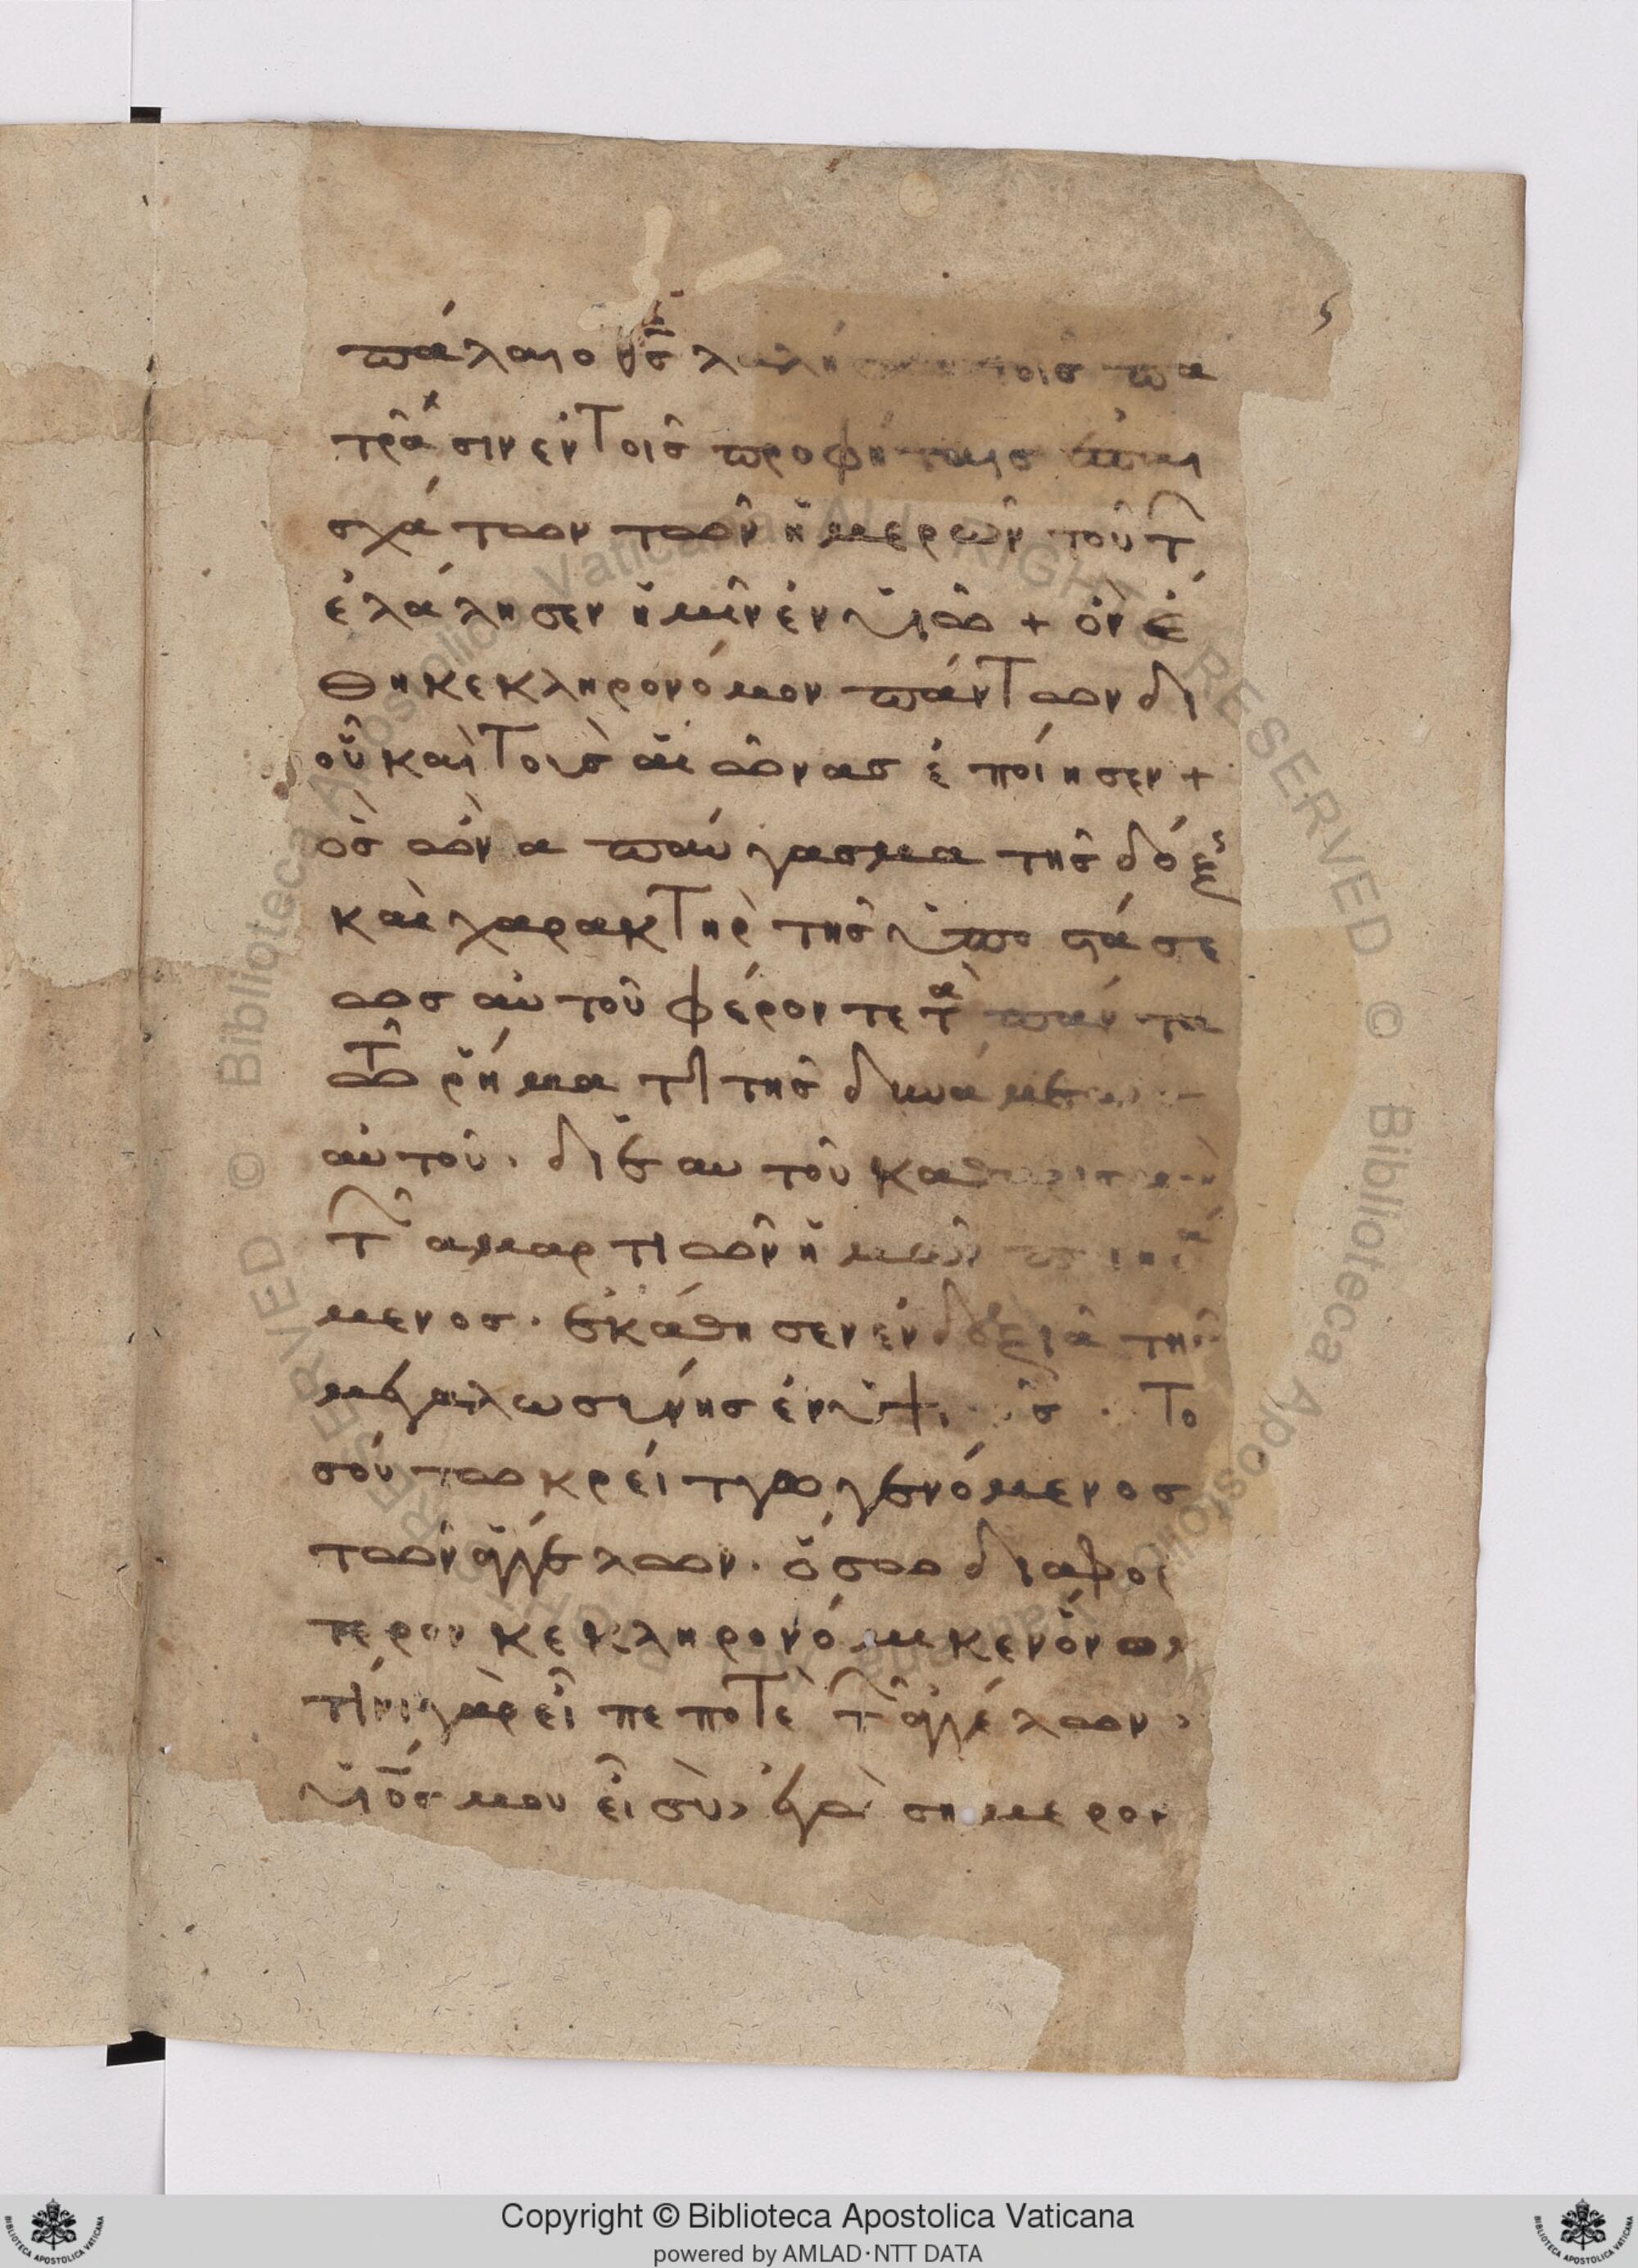 πάλαι ο θς λαλήσας τοις πα
τρᾶσιν ἐν τοῖς προφήταις ἐπ
σχάτων τῶν ἡμερῶν τούτ
ἐλάλησεν ἡμῖν ἐν υἱῶ + ὃν ἔ
θηκε κληρονόμον πάντων δι
οὗ καὶ τοὺς αἰῶνας ἐποίησεν +
ὃς ὢν ἀπαύγασμα τῆς δόξς
καὶ χαρακτὴρ τῆς ὑποστάσε
ως αὐτοῦ φέρον τε τὰ πάντα
τῶ ῥήματι τῆς δυνάμεως
αὐτοῦ· δι ἑαυτοῦ καθαρισμὸν
τ ἁμαρτιῶν ἡμῶν ποιησά
μενος· ἐκάθησεν ἐν δεξιᾶ τῆς
μεγαλωσύνης ἐν ὑψ οῖς · Το
σούτω κρείττω γενόμενος
τῶν ἀγγέλων· ὅσω διαφο
τερον κεκληρονόμικεν ὄνομ
τίνι γὰρ εἶπε ποτὲ τ ἀγγέλων,
υἱός μου εἶ σὺ, ἐγὼ σημερον
Copyright © Biblioteca Apostolica Vaticana
powered by AMLAD·NTT DATA